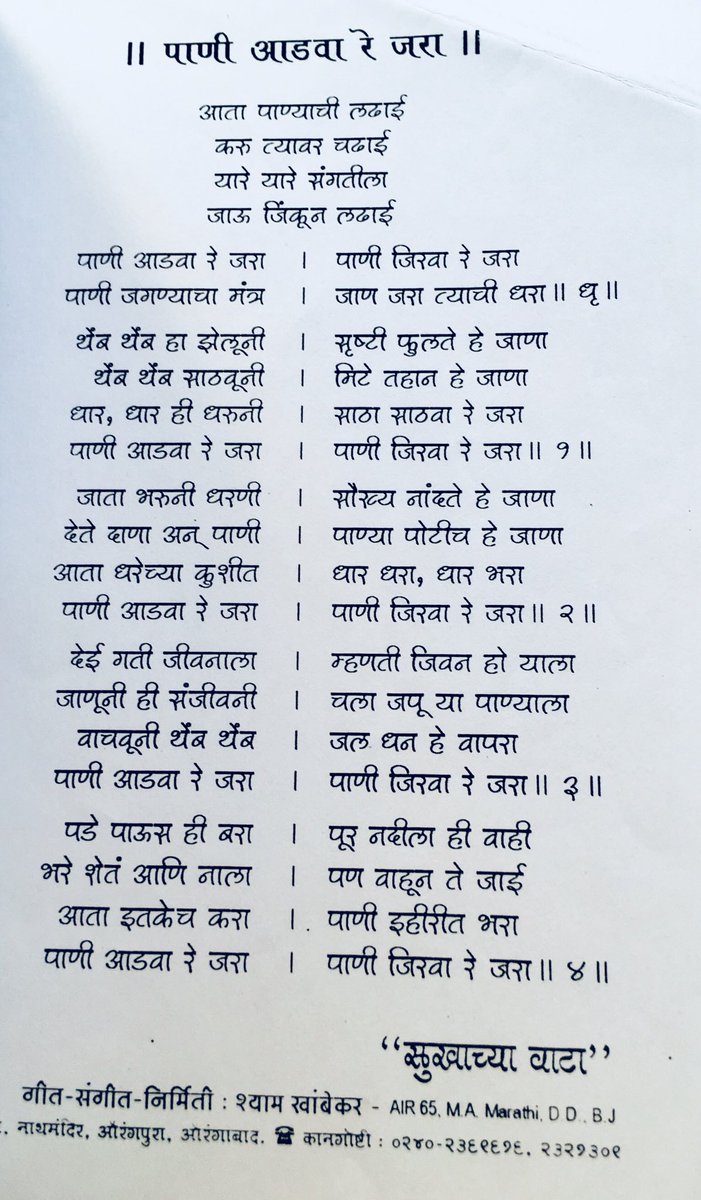 ॥ पाणी आडवा रे जरा ॥
आता पाण्याची लढाई
करु त्यावर चढाई
यारे यारे संगतीला
जाऊ जिंकून लढाई
पाणी आडवा रे जरा । पाणी जिरवा रे जरा
पाणी जगण्याचा मंत्र । जाण जरा त्याची धरा ॥ धृ ॥
थेंब थेंब हा झेलूनी । सृष्टी फुलते हे जाणा
थेंब थेंब साठवूनी । मिटे तहान हे जाणा
धार, धार ही धरुनी । साठा साठवा रे जरा
पाणी आडवा रे जरा । पाणी जिरवा रे जरा ॥ १ ॥
जाता भरुनी धरणी । सौख्य नांदते हे जाणा
देते दाणा अन् पाणी । पाण्या पोटीच हे जाणा
आता धरेच्या कुशीत । धार धरा, धार भरा
पाणी आडवा रे जरा । पाणी जिरवा रे जरा ॥ २ ॥
देई गती जीवनाला । म्हणती जिवन हो याला
जाणूनी ही संजीवनी । चला जपू या पाण्याला
वाचवूनी थेंब थेंब । जल धन हे वापरा
पाणी आडवा रे जरा । पाणी जिरवा रे जरा ॥ ३ ॥
पडे पाऊस ही बरा । पूर नदीला ही वाही
भरे शेतं आणि नाला । पण वाहून ते जाई
आता इतकेच करा । पाणी इहीरीत भरा
पाणी आडवा रे जरा । पाणी जिरवा रे जरा ॥ ४ ॥
“सुखाच्या वाटा”
गीत-संगीत-निर्मिती : श्याम खांबेकर - AIR 65, M.A. Marathi, D D., B.J
नाथमंदिर, औरंगपुरा, औरंगाबाद. ☎ कानगोष्टी : ०२४०-२३६९६१६, २३२१३०९